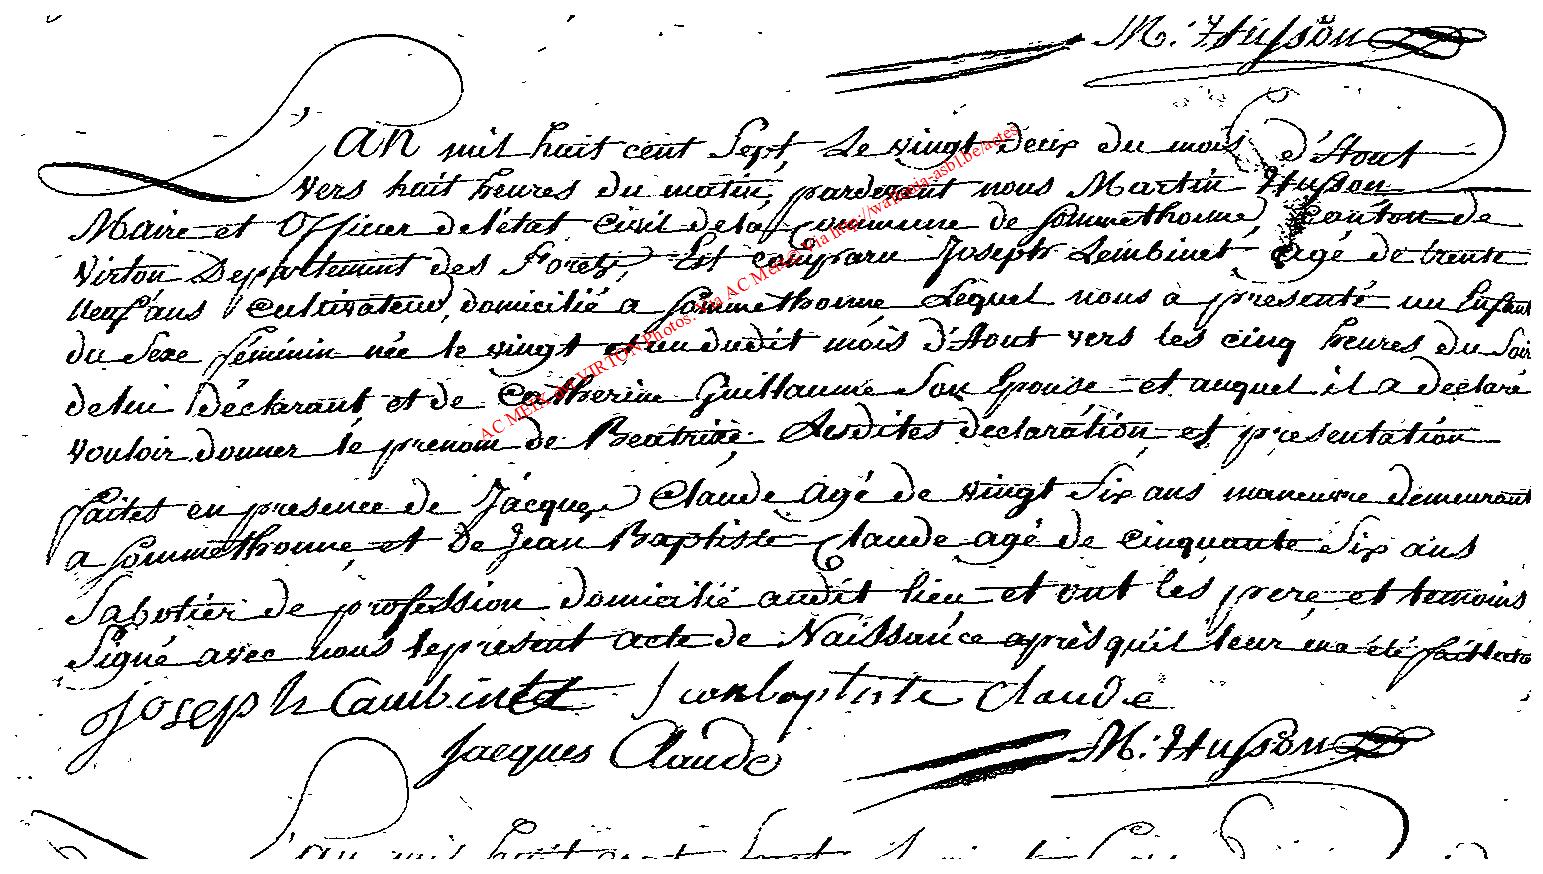 M. Husson
L'an mil huit cent Sept, Le vingt deux du mois d'Aout
vers huit heures du matin, pardevant nous Martin Husson
Maire et Officier de l'état civil de la Commune de Sommethonne, Canton de
Virton Departement des Forets, Est comparu Joseph Lembinet agé de trente
neuf ans Cultivateur, domicilié a Sommethonne, Lequel nous a presenté un Enfant
du Sexe féminin née le vingt et un dudit mois d'Aout vers les cinq heures du Soir
de lui déclarant et de Catherine Guillaume Son Epouse et auquel il a declaré
vouloir donner le prenom de Beatrixe, Lesdites declaration et presentation
faites en presence de Jacques Claude agé de vingt Six ans maneuvre demeurant
a Sommethonne, et de Jean Baptiste Claude agé de cinquante Six ans
Sabotier de profession domicilié audit lieu et ont les pere et temoins
Signé avec nous le present acte de Naissance après qu'il leur en a été fait
Joseph Lambinet Jean baptiste Claude
Jacques Claude M. Husson
L'an mil huit cent Sept
AC MEIX dt VIRTON Photos: Via AC MEIX Via http://wallonia-asbl.be/actes